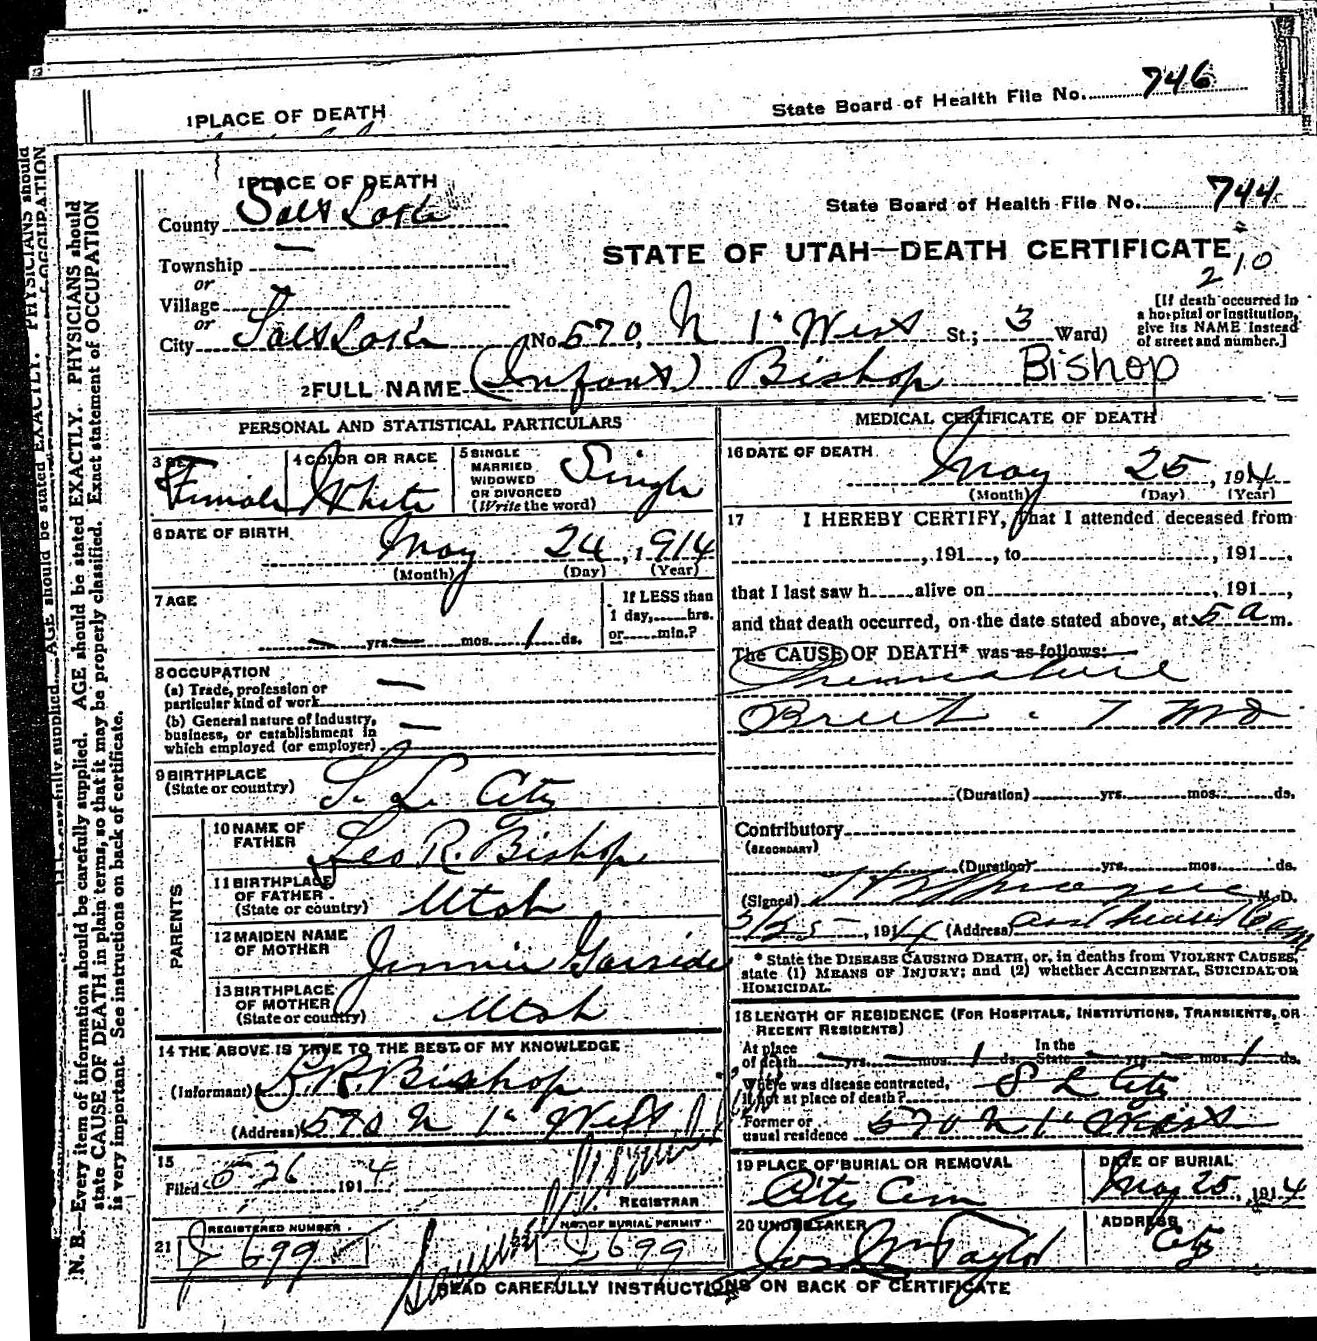 1 PLACE OF DEATH
State Board of Health File No. 746
1 PLACE OF DEATH
County Salt Lake
State Board of Health File No. 744
STATE OF UTAH—DEATH CERTIFICATE
210
Township —
or
Village
or
City Salt Lake (No. 570, N 1st West St.; 3 Ward)
[If death occurred in a hospital or institution, give its NAME instead of street and number.]
2 FULL NAME (Infant) Bishop Bishop
PERSONAL AND STATISTICAL PARTICULARS
3 SEX Female
4 COLOR OR RACE White
5 SINGLE MARRIED WIDOWED OR DIVORCED (Write the word) Single
6 DATE OF BIRTH May 24, 1914
(Month) (Day) (Year)
7 AGE — yrs. — mos. 1 ds.
If LESS than 1 day, hrs. or min.?
8 OCCUPATION
(a) Trade, profession or particular kind of work —
(b) General nature of industry, business, or establishment in which employed (or employer) —
9 BIRTHPLACE (State or country) S. L. City
PARENTS
10 NAME OF FATHER Leo R. Bishop
11 BIRTHPLACE OF FATHER (State or country) Utah
12 MAIDEN NAME OF MOTHER Jennie Garside
13 BIRTHPLACE OF MOTHER (State or country) Utah
14 THE ABOVE IS TRUE TO THE BEST OF MY KNOWLEDGE
(Informant) L R. Bishop
(Address) 570 N 1st West
15
Filed 5-26 1914
REGISTRAR
21
REGISTERED NUMBER
J 699
NO. OF BURIAL PERMIT
J 699
MEDICAL CERTIFICATE OF DEATH
16 DATE OF DEATH May 25, 1914
(Month) (Day) (Year)
17 I HEREBY CERTIFY, that I attended deceased from
, 191 , to , 191 ,
that I last saw h alive on , 191 ,
and that death occurred, on the date stated above, at 5 a m.
The CAUSE OF DEATH* was as follows:
Premature
Birth. 7 mo
(Duration) yrs. mos. ds.
Contributory
(SECONDARY)
(Duration) yrs. mos. ds.
(Signed) H B Sprague M. D.
5/25, 1914 (Address)
* State the DISEASE CAUSING DEATH, or, in deaths from VIOLENT CAUSES, state (1) MEANS OF INJURY; and (2) whether ACCIDENTAL, SUICIDAL OR HOMICIDAL.
18 LENGTH OF RESIDENCE (FOR HOSPITALS, INSTITUTIONS, TRANSIENTS, OR RECENT RESIDENTS)
At place of death — yrs. — mos. 1 ds. In the State — yrs. — mos. 1 ds.
Where was disease contracted, if not at place of death? S L City
Former or usual residence 570 N 1st West
19 PLACE OF BURIAL OR REMOVAL City Cem
DATE OF BURIAL May 25, 1914
20 UNDERTAKER Jos Wm Taylor
ADDRESS City
READ CAREFULLY INSTRUCTIONS ON BACK OF CERTIFICATE
N. B.—Every item of information should be carefully supplied. AGE should be stated EXACTLY. PHYSICIANS should
state CAUSE OF DEATH in plain terms, so that it may be properly classified. Exact statement of OCCUPATION
is very important. See instructions on back of certificate.